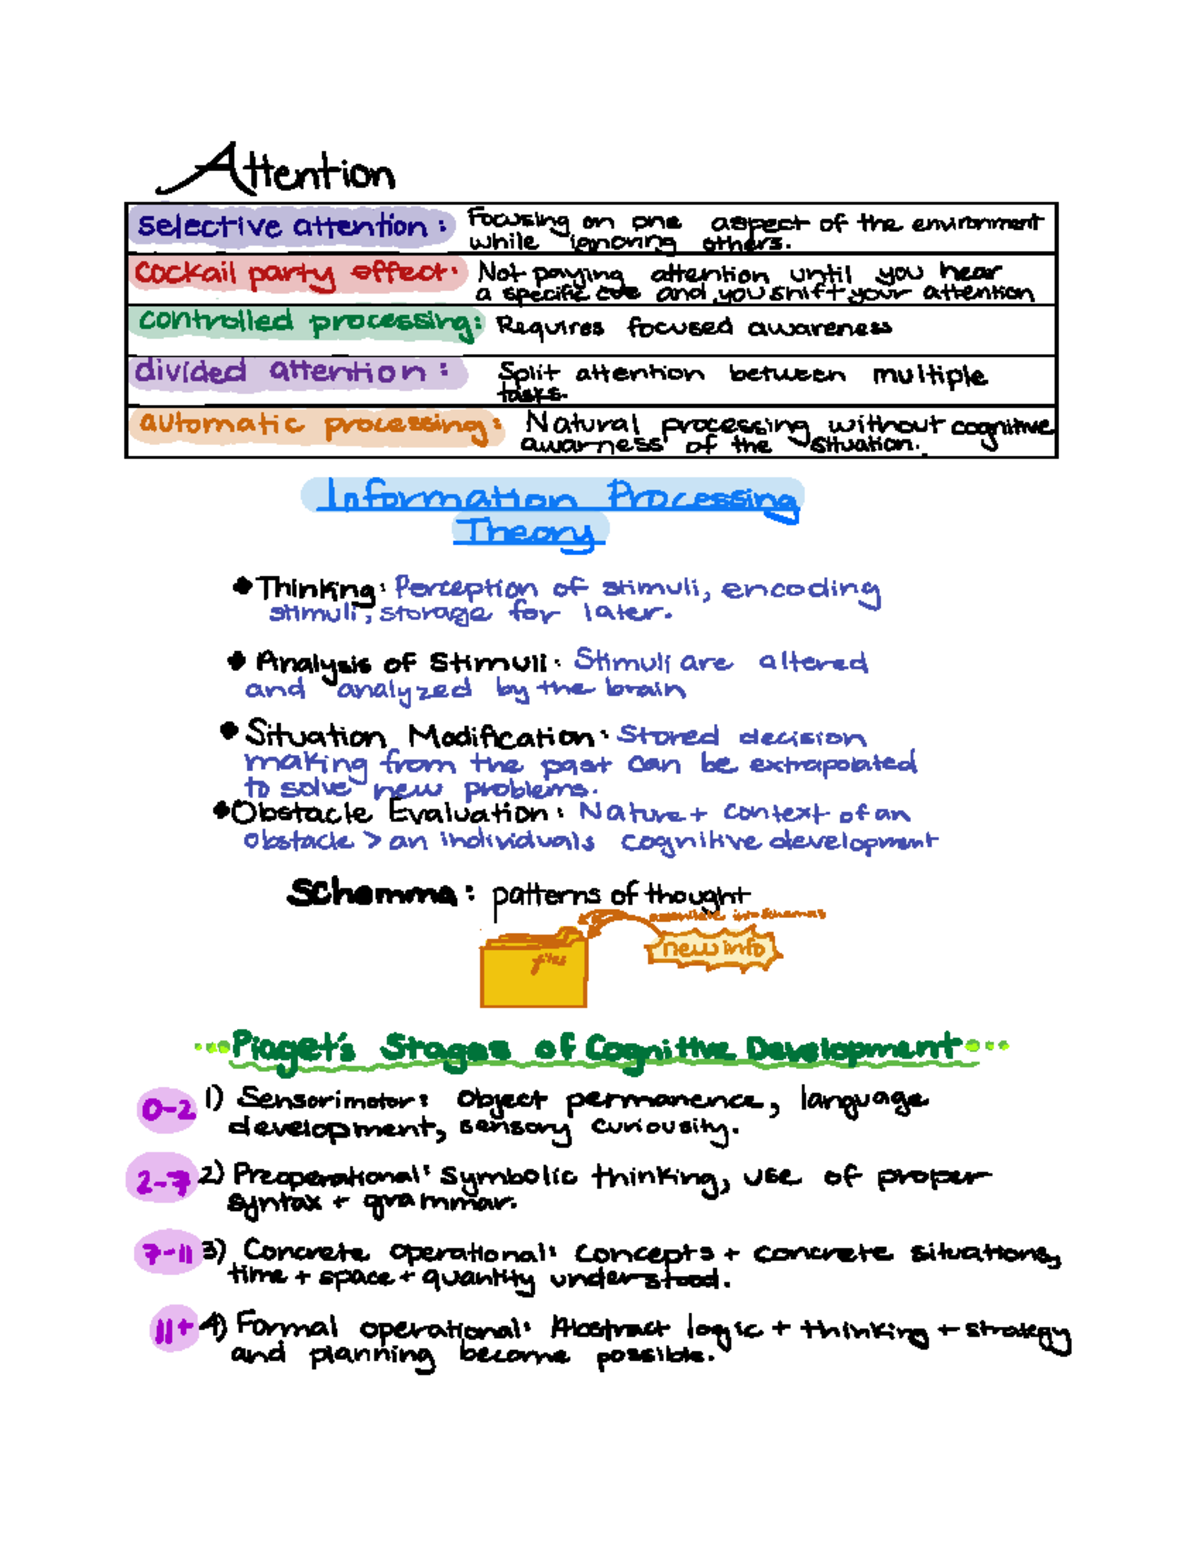 Attention
selective attention: Focusing on one aspect of the environment
while ignoring others.
cockail party effect: Not paying attention until you hear
a specific cue and you shift your attention
controlled processing: Requires focused awareness
divided attention: Split attention between multiple
tasks.
automatic processing: Natural processing without cognitive
awarness of the situation.
Information Processing
Theory
Thinking: Perception of stimuli, encoding
stimuli, storage for later.
Analysis of Stimuli: Stimuli are altered
and analyzed by the brain
Situation Modification: Stored decision
making from the past can be extrapolated
to solve new problems.
Obstacle Evaluation: Nature + context of an
obstacle > an individuals cognitive development
Schemma: patterns of thought
assimilate into schemas
new info
files
Piaget's Stages of Cognitive Development
0-2 1) Sensorimotor: Object permanence, language
development, sensory curiousity.
2-7 2) Preoperational: Symbolic thinking, use of proper
syntax + grammar.
7-11 3) Concrete operational: Concepts + concrete situations,
time + space + quantity understood.
11+ 4) Formal operational: Abstract logic + thinking + strategy
and planning become possible.